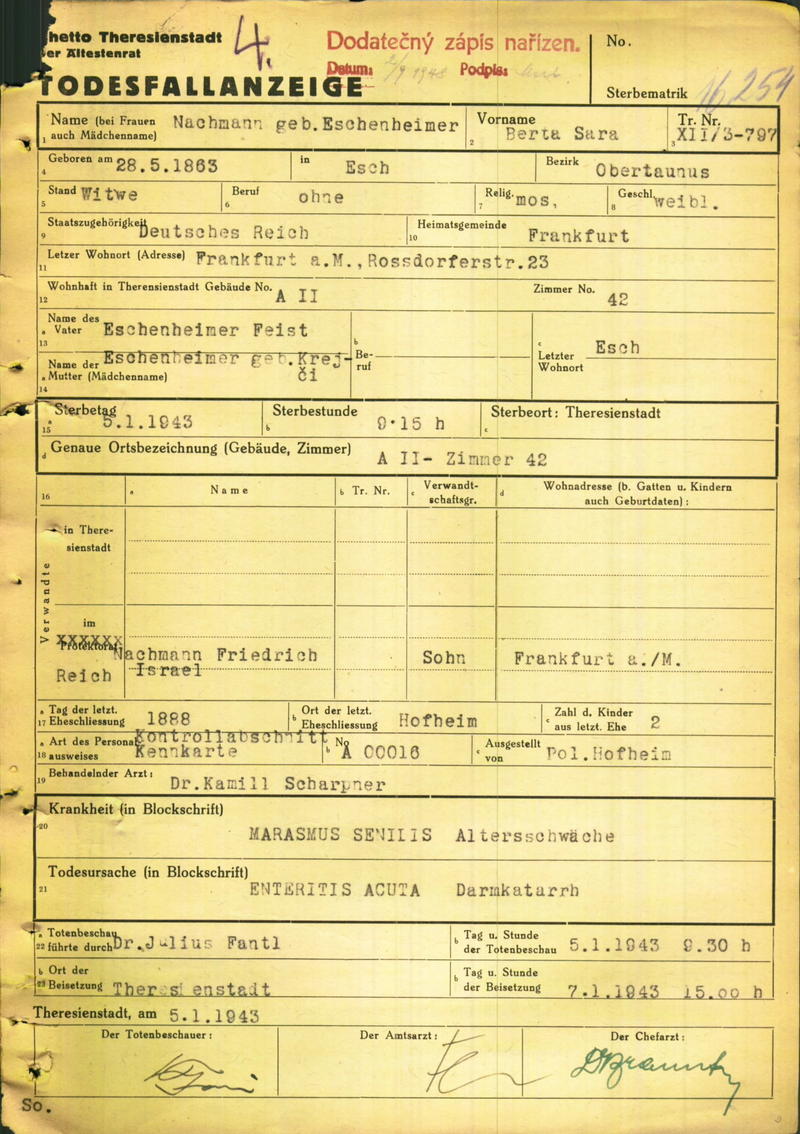 Ghetto Theresienstadt
der Ältestenrat
4.
Dodatečný zápis nařízen.
Datum: Podpis:
TODESFALLANZEIGE
No.
Sterbematrik 16/254
Name (bei Frauen auch Mädchenname) Nachmann geb.Eschenheimer
1
Vorname Berta Sara
2
Tr. Nr. XII/3-797
3
Geboren am 28.5.1863 in Esch Bezirk Obertaunus
4
Stand Witwe Beruf ohne Relig. mos, Geschl. weibl.
5 6 7 8
Staatszugehörigkeit Deutsches Reich Heimatsgemeinde Frankfurt
9 10
Letzer Wohnort (Adresse) Frankfurt a.M.,Rossdorferstr.23
11
Wohnhaft in Therensienstadt Gebäude No. A II Zimmer No. 42
12
Name des
a Vater Eschenheimer Feist
13
Name der Eschenheimer geb.Krej-
a Mutter (Mädchenname) či
14
b Be-
ruf
c Letzter
Wohnort Esch
Sterbetag 5.1.1943 Sterbestunde 9.15 h Sterbeort: Theresienstadt
a 15 b c
d Genaue Ortsbezeichnung (Gebäude, Zimmer) A II- Zimmer 42
16 a Name b Tr. Nr. c Verwandt-
schaftsgr. d Wohnadresse (b. Gatten u. Kindern
auch Geburtdaten):
Verwandte
in There-
sienstadt
im
XXXXXX
Protektorat
Reich
Nachmann Friedrich Sohn Frankfurt a./M.
Israel
a Tag der letzt.
17 Eheschliessung 1888 b Ort der letzt.
Eheschliessung Hofheim c Zahl d. Kinder
aus letzt. Ehe 2
a Art des Personal-
18 ausweises Kontrollabschnitt
Kennkarte b No A 00016 c Ausgestellt
von Pol.Hofheim
19 Behandelnder Arzt: Dr.Kamill Scharpner
Krankheit (in Blockschrift)
20
MARASMUS SENILIS Altersschwäche
Todesursache (in Blockschrift)
21
ENTERITIS ACUTA Darmkatarrh
a Totenbeschau
22 führte durch Dr.Julius Fantl b Tag u. Stunde
der Totenbeschau 5.1.1943 9.30 h
b Ort der
23 Beisetzung Theresienstadt b Tag u. Stunde
der Beisetzung 7.1.1943 15.00 h
Theresienstadt, am 5.1.1943
Der Totenbeschauer: Der Amtsarzt: Der Chefarzt:
So.